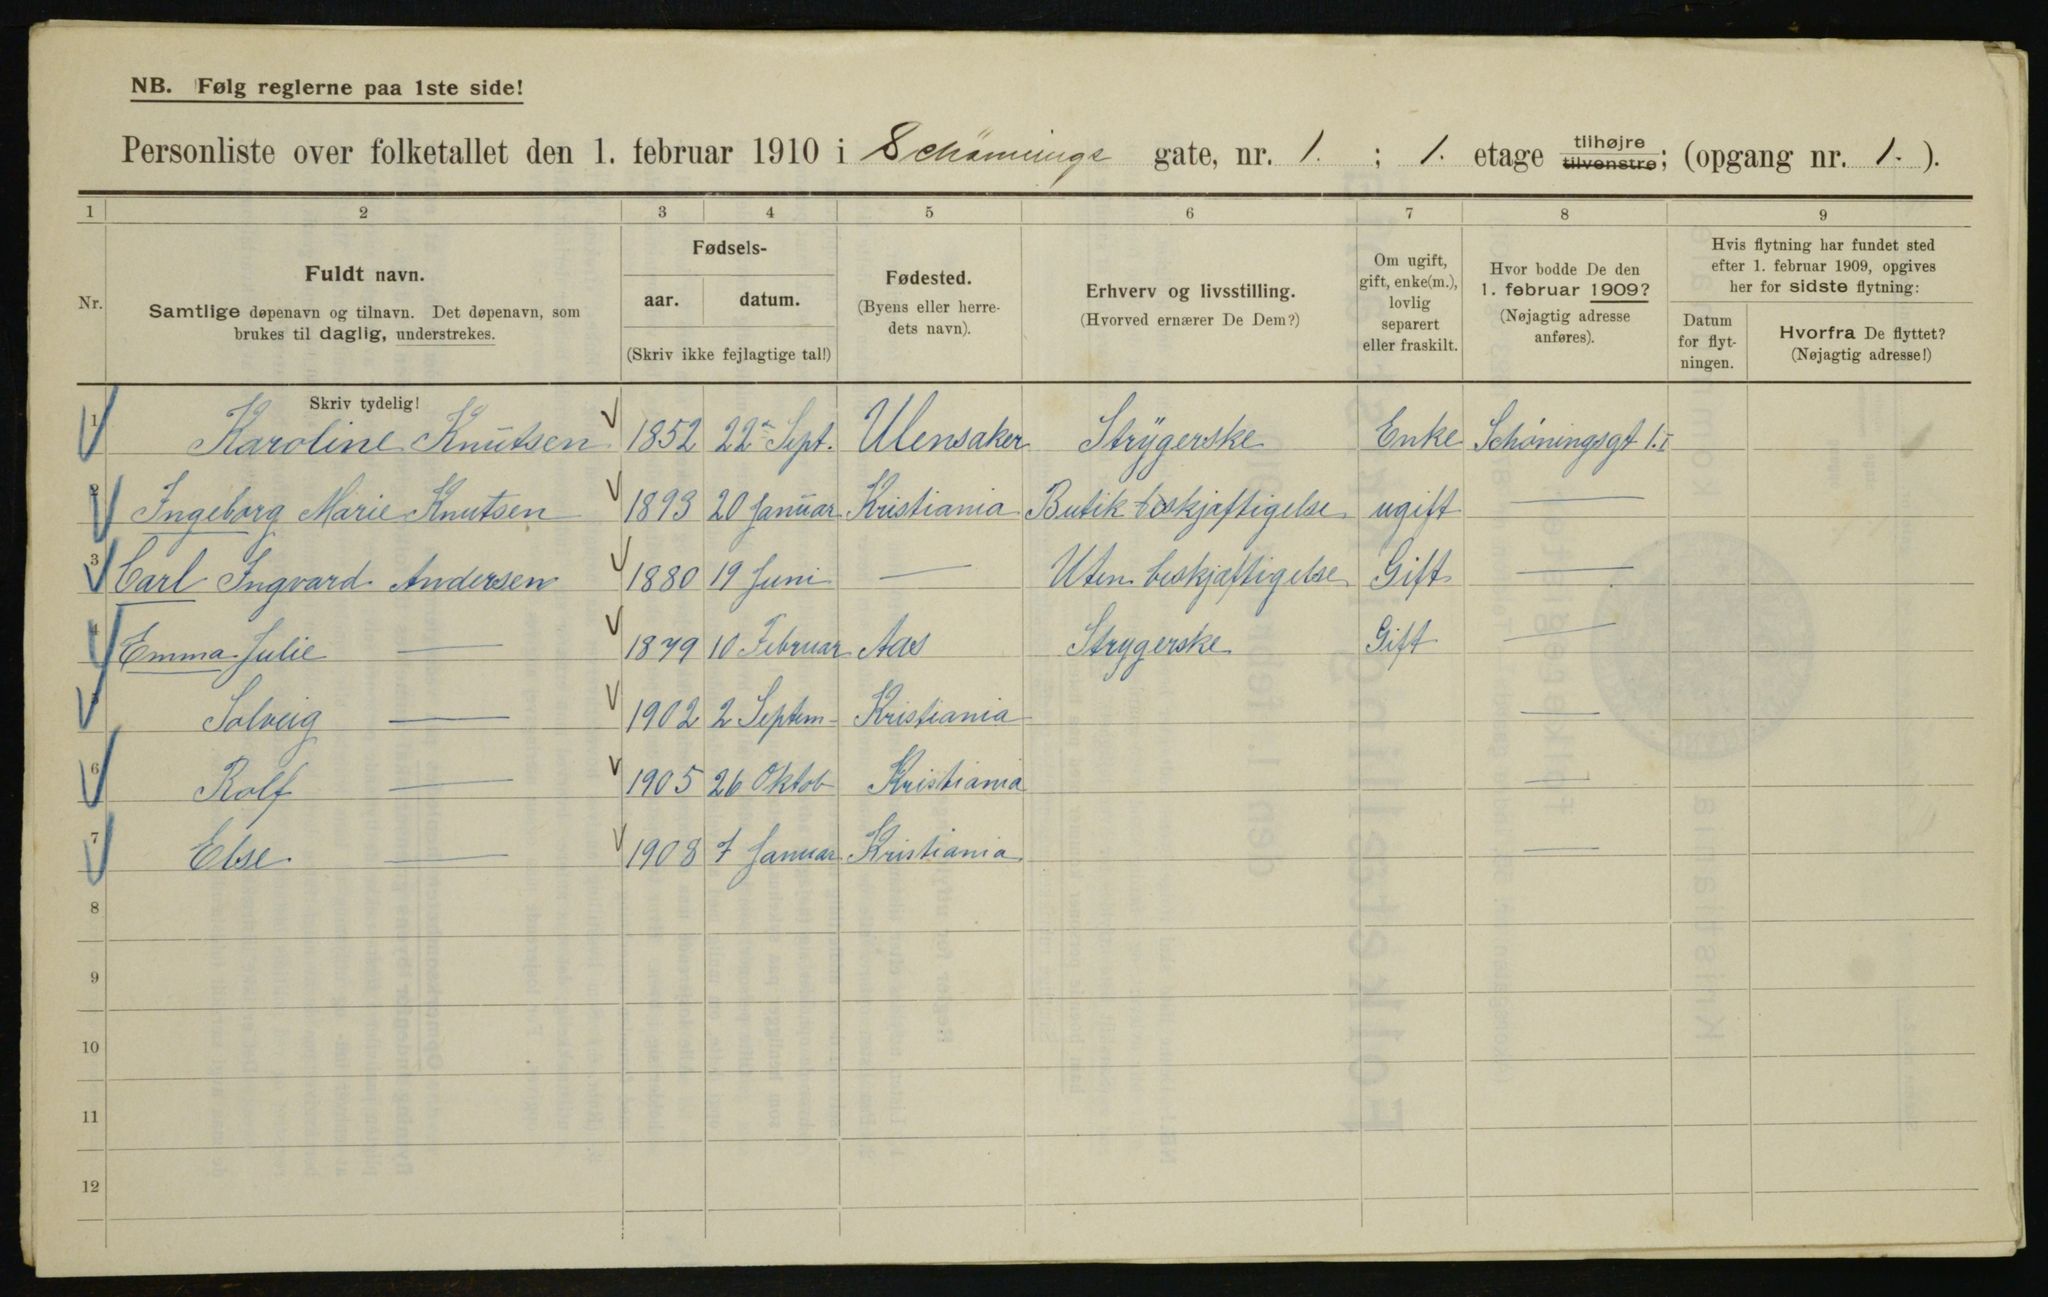 NB. Følg reglerne paa 1ste side!
Personliste over folketallet den 1. februar 1910 i Schönnings gate, nr. 1. ; 1. etage tilhøjre tilvenstre; (opgang nr. 1. ).
1 2 3 4 5 6 7 8 9
Nr.
Fuldt navn.
Samtlige døpenavn og tilnavn. Det døpenavn, som
brukes til daglig, understrekes.
Fødsels-
aar. datum.
(Skriv ikke fejlagtige tal!)
Fødested.
(Byens eller herre-
dets navn).
Erhverv og livsstilling.
(Hvorved ernærer De Dem?)
Om ugift,
gift, enke(m.),
lovlig
separert
eller fraskilt.
Hvor bodde De den
1. februar 1909?
(Nøjagtig adresse
anføres).
Hvis flytning har fundet sted
efter 1. februar 1909, opgives
her for sidste flytning:
Datum
for flyt-
ningen.
Hvorfra De flyttet?
(Nøjagtig adresse!)
Skriv tydelig!
1 Karoline Knutsen 1852 22 Sept. Ulensaker Strygerske Enke Schöningsgt 1.I
2 Ingeborg Marie Knutsen 1893 20 Januar Kristiania Butik beskjæftigelse ugift —
3 Carl Ingvard Andersen 1880 19 Juni — Uten beskjæftigelse Gift —
4 Emma Julie — 1879 10 Februar Aas Strygerske Gift —
5 Solveig — 1902 2 Septem- Kristiania —
6 Rolf — 1905 26 Oktob Kristiania —
7 Else — 1908 7 Januar Kristiania —
8
9
10
11
12